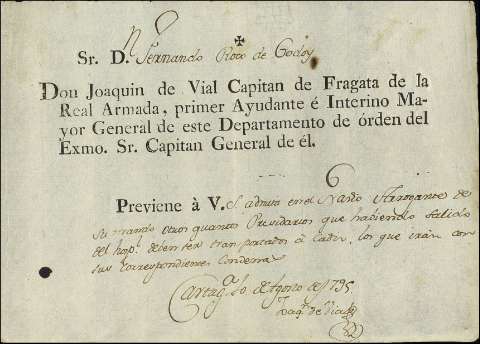 Sr. D. Fernando de Godoy
Don Joaquin de Vial Capitan de Fragata de la
Real Armada, primer Ayudante é Interino Ma-
yor General de este Departamento de órden del
Exmo. Sr. Capitan General de él.
Previene à V. S. admita en el Navio Arrogante de
su mando otros quantos Presidarios que haviendo salido
del hospl. deben ser tran portados à Cadiz, los que irán con
sus correspondientes Condenas
Cartaga. de Agosto de 795
Joaqn. de Vial